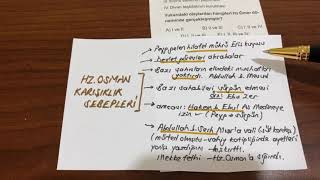 IV. Divan teşkilatının kurulması
Yukarıdaki olaylardan hangileri Hz. Ömer döneminde gerçekleşmiştir?
A) I ve II
HZ. OSMAN
KARIŞIKLIK
SEBEPLERİ
Peygamberin hilafet mührü Eris kuyusu
Devlet görevleri akrabalar
Bazı şahısların elindeki mushafları
yaktırdı. Abdullah b. Mesud
Bazı sahabileri sürgün etmesi
Ebu Zer
amcası: Hakem b. Ebil As Medineye
izin
Abdullah b. Serh Mısır'a vali (süt kardeş)
(mürted olmuştu - vahiy katipliğinde ayetleri
yanlış yazdığını
Mekke fethi Hz. Osman'a sığındı.